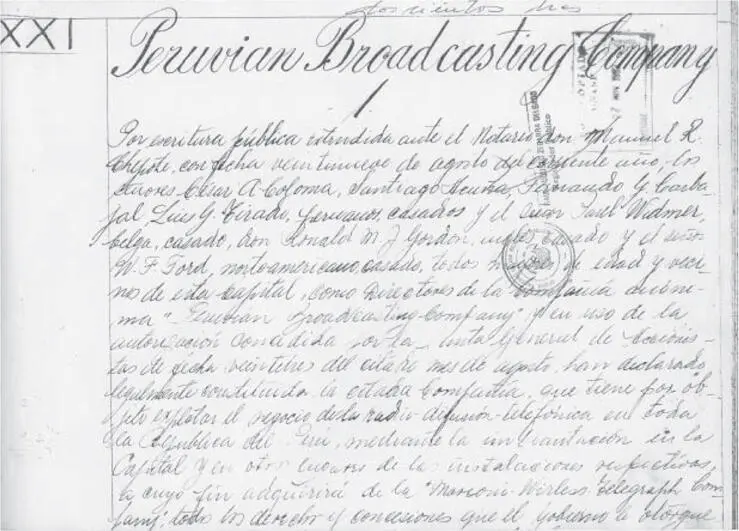 doscientos tres
XXI
Peruvian Broadcasting Company
1
Por escritura pública extendida ante el Notario don Manuel R.
Chepote, con fecha veintinueve de agosto del corriente año, los
señores César A. Coloma, Santiago Acuña, Fernando G. Carba-
jal, Luis G. Tirado, peruanos, casados y el señor Paul Widmer,
belga, casado, don Ronald M. J. Gordon, inglés, casado y el señor
W. F. Ford, norteamericano, casado, todos mayores de edad y veci-
nos de esta Capital, como Directores de la Compañía anóni-
ma "Peruvian Broadcasting Company" y en uso de la
autorización concedida por la Junta General de Accionis-
tas de fecha veintitres del citado mes de agosto, han declarado
legalmente constituida la citada Compañía, que tiene por ob-
jeto explotar el negocio de la radio-difusión-telefónica en toda
la República del Perú, mediante la implantación en la
Capital y en otros lugares de las instalaciones respectivas,
a cuyo fin adquirirá de la "Marconi Wirless Telegraph Com-
pany", todos los derechos y concesiones que el gobierno le otorgue